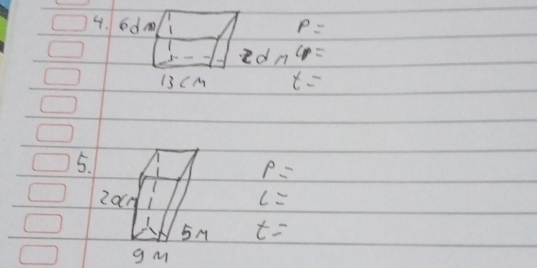 4. 6dm P=
2dm l=
13cm t=
5. P=
20cm l=
5m t=
9m